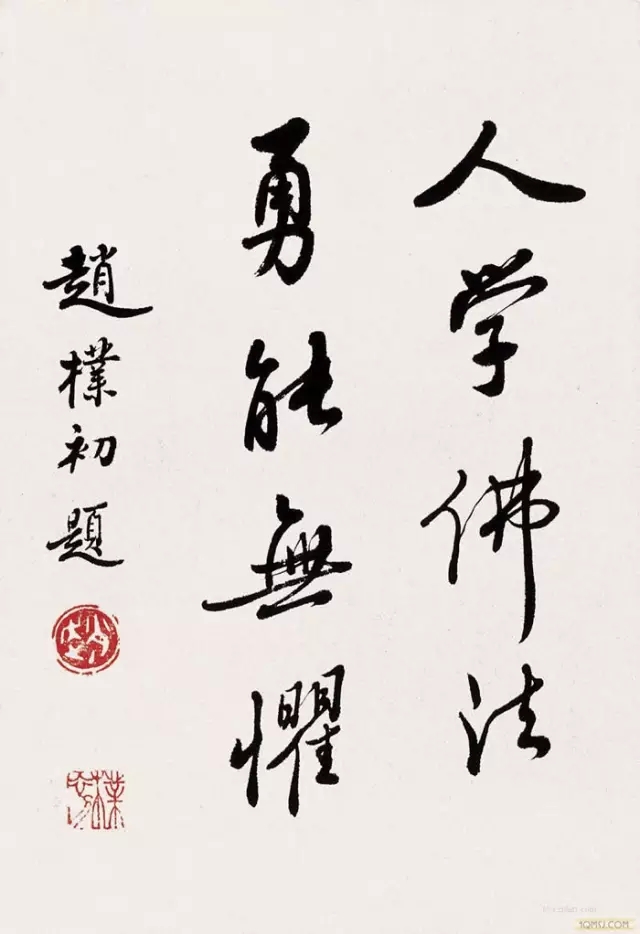 人学佛法
勇能無懼
趙樸初題
1QMSJ.COM